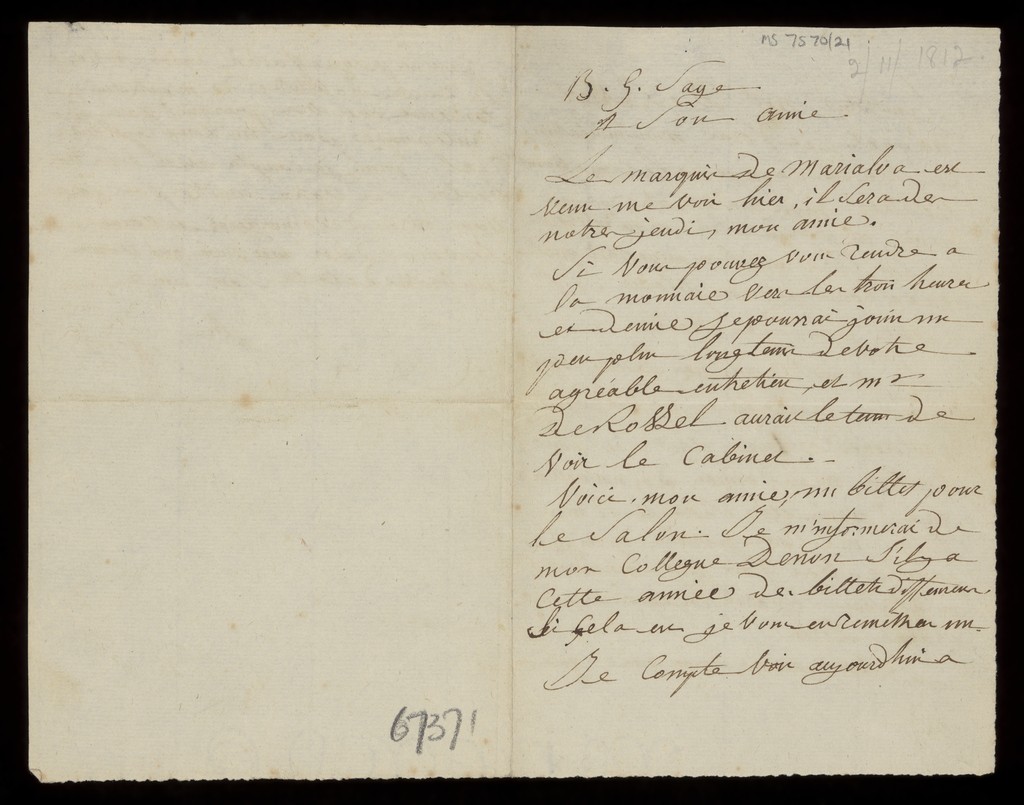 MS 7570/21
2/11/1812.
B. G. Sage
A Son amie
Le marquis de Marialva est
venu me voir hier, il Sera de
notre jeudi, mon amie.
Si Vous pouvez vous rendre a
la monnaie vers les trois heures
et demie je pourrai jouir un
peu plus longtems de votre
agréable entretien, et mr
De Rossel aurait le tems de
voir le Cabinet.
Voici, mon amie, un billet pour
le Salon. Je m'informerai de
mon Collegue Denon S'il y a
cette année des billets differens.
Si Cela est je vous en remettrai un.
Je Compte voir aujourdhui a
67371